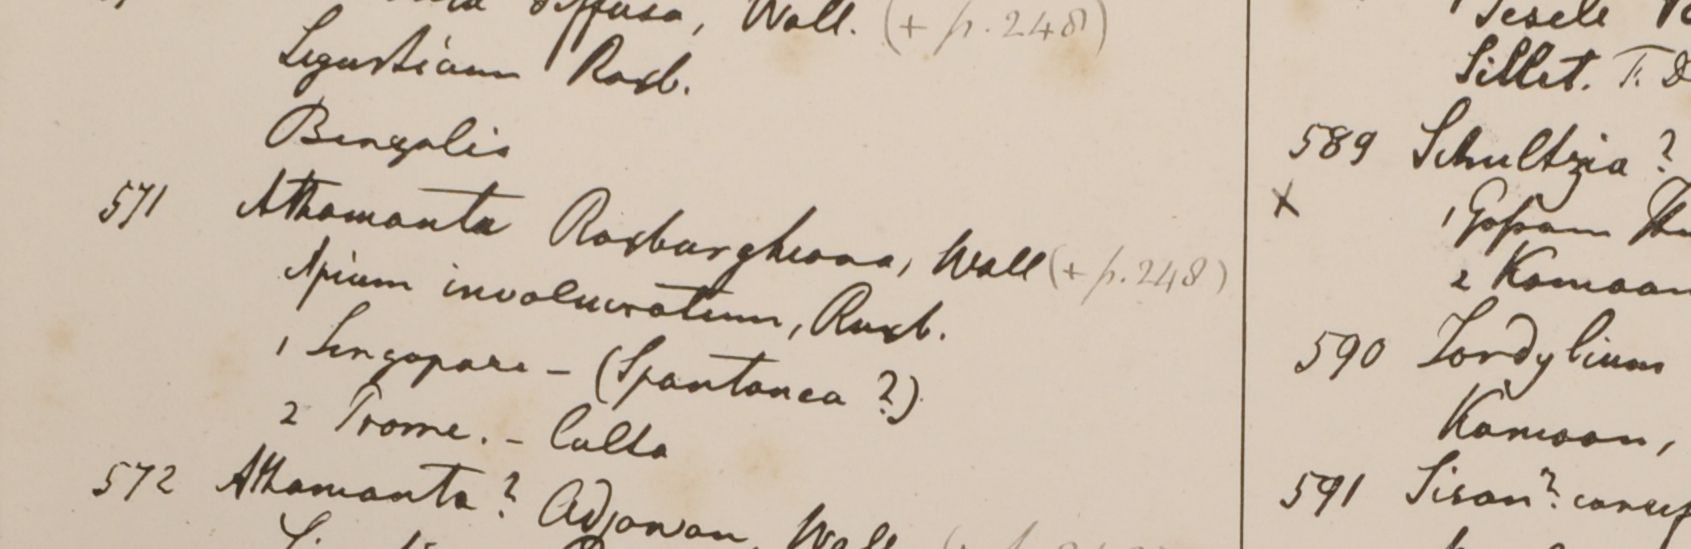 diffusa, Wall. (+ p. 248)
Ligusticum Roxb.
Bengalis
571 Athamanta Roxburghiana, Wall (+ p. 248)
Apium involucratum, Roxb.
1 Singapore – (Spontanea ?)
2 Prome. – Culta
572 Athamanta ? Adjowan, Wall
Seseli
Sillet. F. D
589 Schultzia ?
X
1 Gossam
2 Kamaon
590 Tordylium
Kamaon,
591 Sison ?